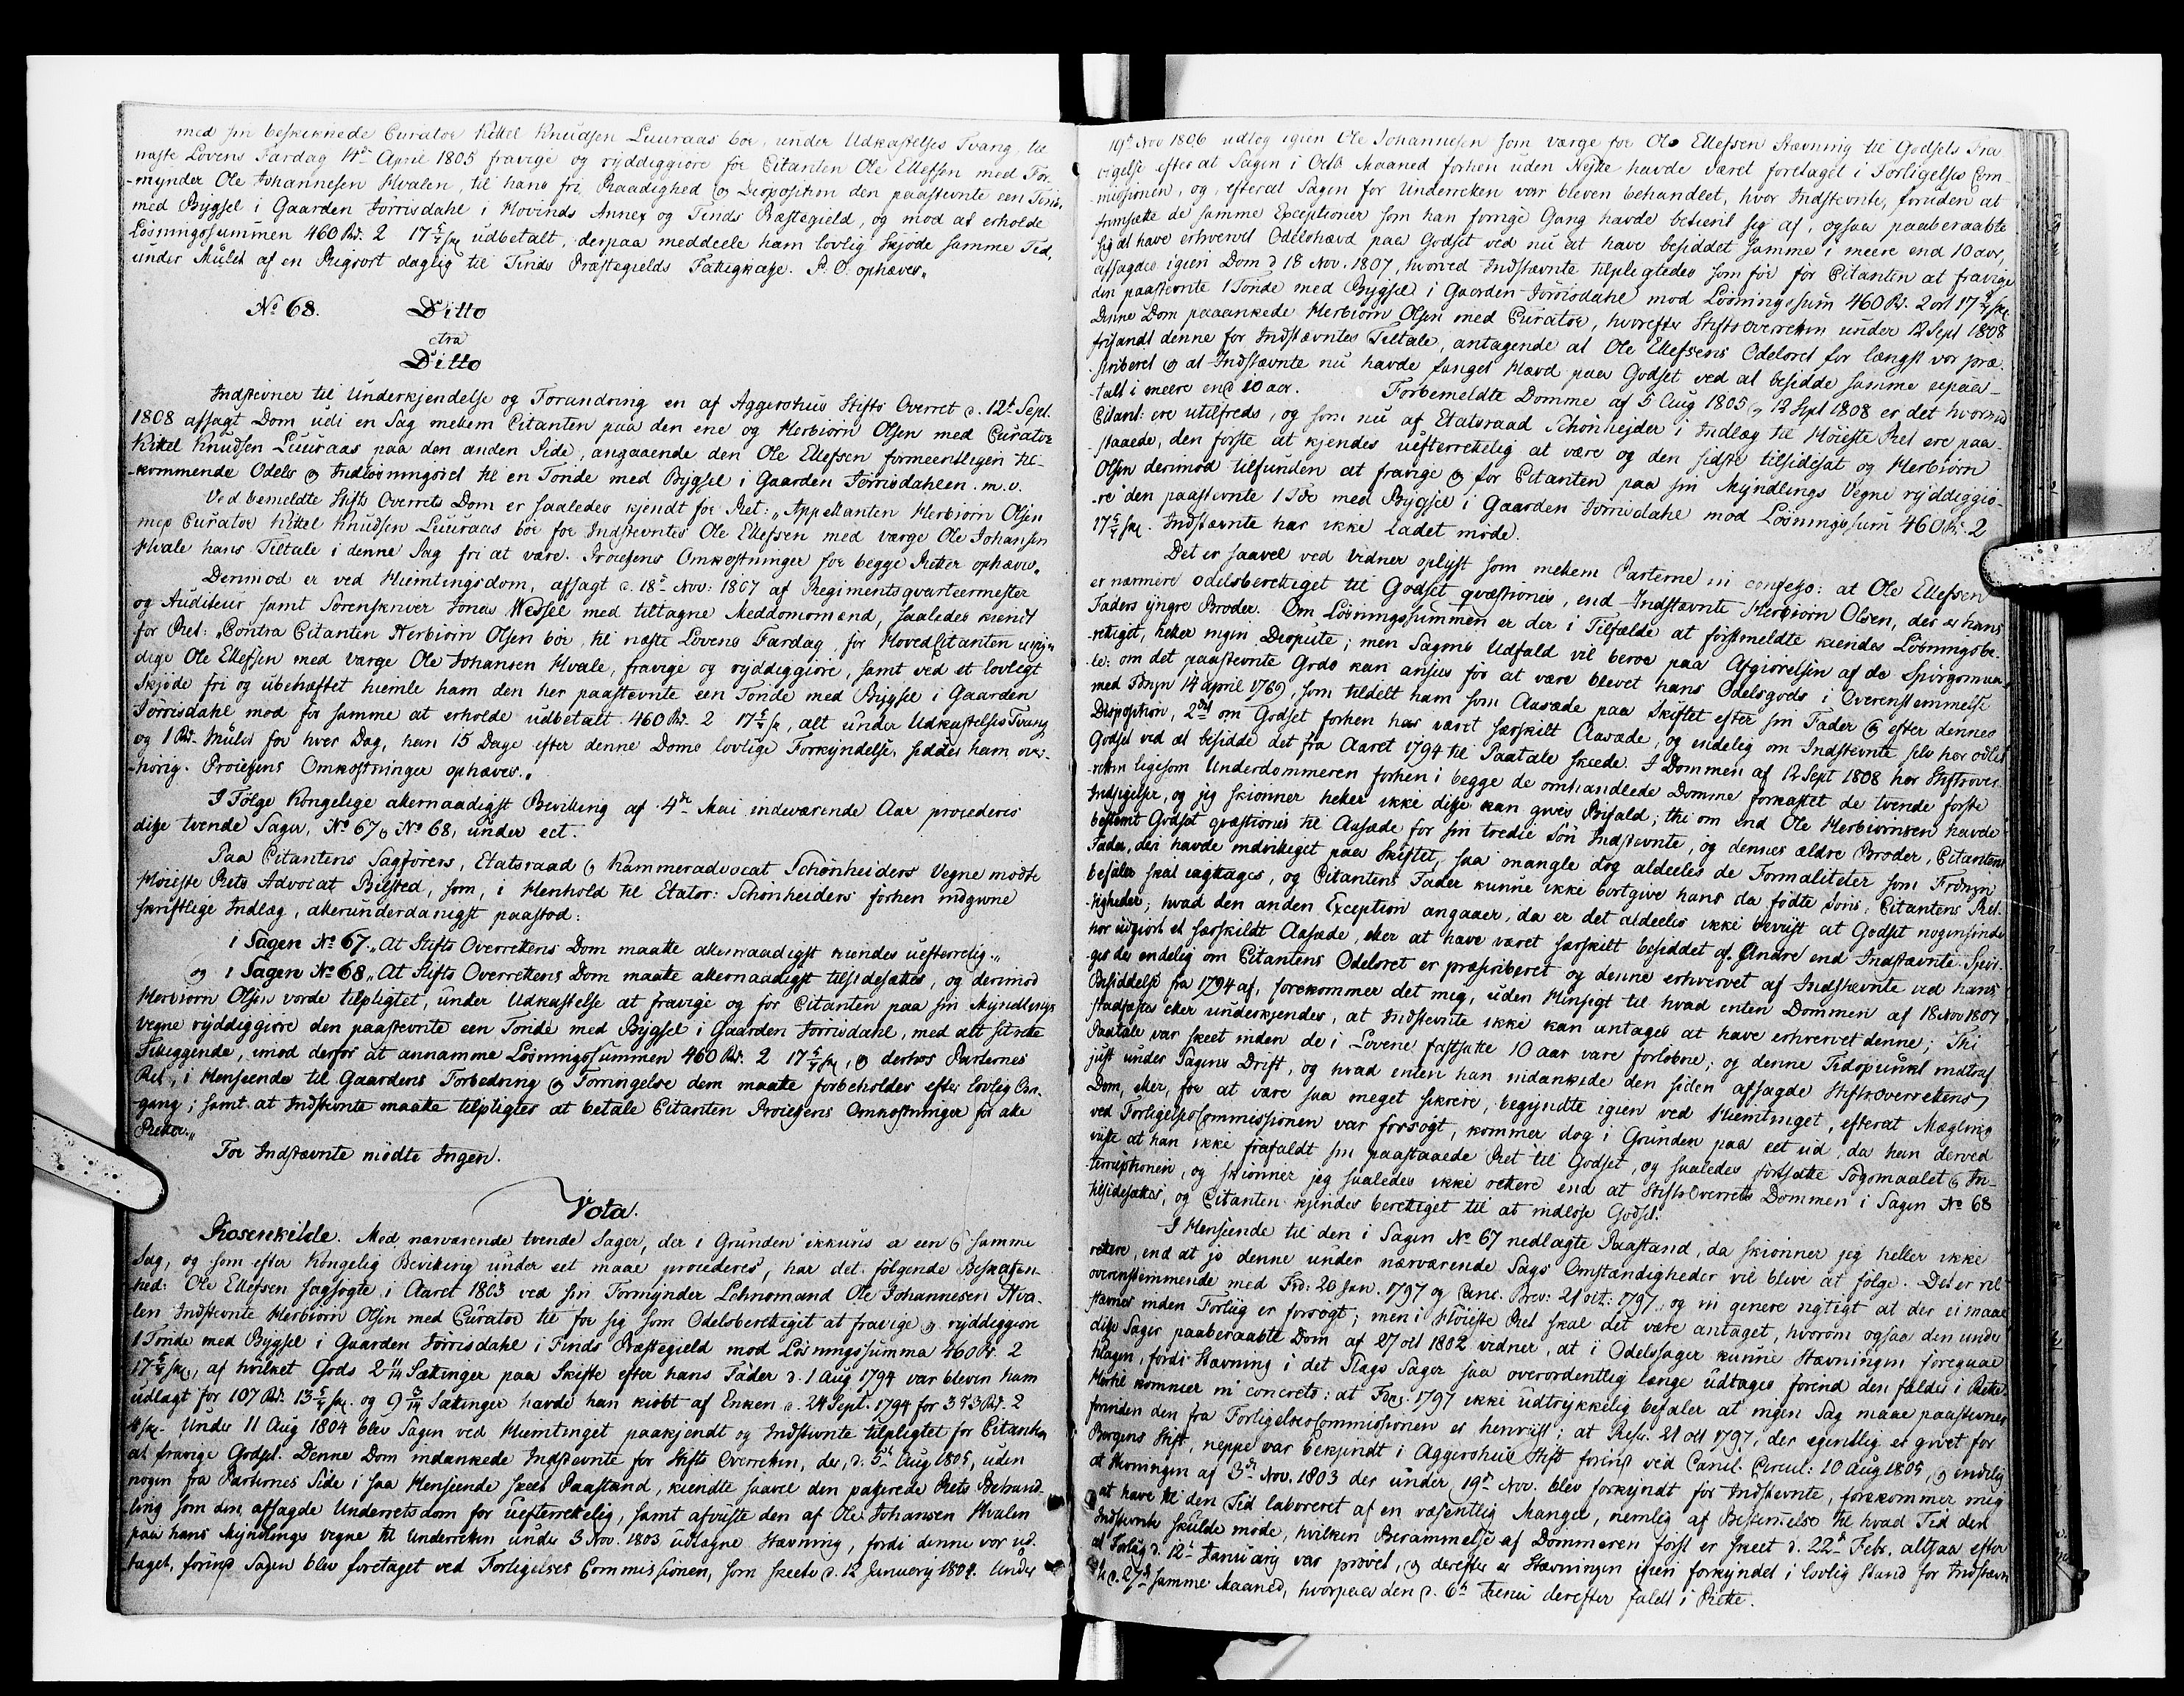 med sin beskikkede Curator Kittel Knudsen Luuraas bør, under Udkastelses Tvang, til
næste Lovens Fardag 14de April 1805 fravige og ryddeggiøre for Citanten Ole Ellefsen med For-
-mynder Ole Johannesen Hvalen, til hans fri Raadighed og Disposition den paastevnte een Tønde
med Bygsel i Gaarden Jørrisdahl i Hovinds Annex og Tinds Præstegield, og mod at erholde
Løsningssummen 460 Rd. 2 17 5/7 sk udbetalt, derpaa meddeele ham lovlig Skjøde samme Tid,
under Mulct af en Rigsort daglig til Tinds Præstegields Fattigkasse. P. O. ophæves„
No 68. Ditto
ctra
Ditto
Indstevner til Underkjendelse og Forandring en af Aggershuus Stifts Overret d. 12t Sept.
1808 afsagt Dom udi en Sag mellem Citanten paa den ene og Herbiørn Olsen med Curator
Kittel Knudsen Luuraas paa den anden Side, angaaende den Ole Ellefsen formeentligen til-
-kommende Odels og Indløsningsret til en Tønde med Bygsel i Gaarden Jørrisdahlen. m. v.
Ved bemeldte Stifts Overrets Dom er saaledes kjendt for Ret: „Appellanten Herbiørn Olsen
med Curator Kittel Knudsen Luuraas bør for Indstevntes Ole Ellefsen med værge Ole Johansen
Hvale hans Tiltale i denne Sag fri at være. Processens Omkostninger for begge Retter ophæves„
Derimod er ved Hiemtingsdom, afsagt d. 18t Nov: 1807 af Regimentsqvarteermester
og Auditeur samt Sorenskriver Jonas Wessel med tiltagne Meddomsmænd, saaledes kiendt
for Ret: „Contra Citanten Herbiørn Olsen bør, til næste Lovens Fardag, for HovedCitanten umyn-
dige Ole Ellefsen med Værge Ole Johansen Hvale, fravige og ryddiggiøre, samt ved et lovligt
Skjøde fri og ubehæftet hiemle ham den her paastevnte een Tønde med Bygsel i Gaarden
Jørrisdahl mod for samme at erholde udbetalt 460 Rd. 2 17 5/7 sk, alt under Udkastelses Tvang
og 1 Rd. Mulct for hver Dag, han 15 Dage efter denne Doms lovlige Forkyndelse, sidder ham over-
-hørig. Processens Omkostninger ophæves.„
I Følge Kongelige allernaadigst Bevilling af 4de Mai indeværende Aar procederes
disse tvende Sager, No 67 og No 68, under eet.
Paa Citantens Sagførers, Etatsraad og Kammeradvocat Schønheiders Vegne mødte
Høieste Rets Advocat Bilsted, som, i Henhold til Etatsr: Schønheiders forhen indgivne
skriftlige Indlæg, allerunderdanigst paastod:
i Sagen No 67. „At Stifts Overrettens Dom maatte allernaadigst kiendes uefterretlig.„
og i Sagen No 68 „At Stifts Overrettens Dom maatte allernaadigst tilsidesættes, og derimod
Herbiørn Olsen vorde tilpligtet, under Udkastelse at fravige og for Citanten paa sin Myndlings
Vegne ryddiggiøre den paastevnte een Tønde med Bygsel i Gaarden Jørrisdahl, med alt sit rette
Tilliggende, imod derfor at annamme Løsningssummen 460 Rd. 2 17 5/7 sk, og derhos Parternes
Ret, i Henseende til Gaardens Forbedring og Forringelse dem maatte forbeholdes efter lovlig Om-
gang; samt at Indstevnte maatte tilpligtes at betale Citanten Processens Omkostninger for alle
Retter.„
For Indstævnte mødte Ingen.
Vota.
Rosenkilde. Med nærværende tvende Sager, der i Grunden ikkuns er een og samme
Sag, og som efter Kongelig Bevilling under eet maae procederes, har det følgende Beskaffen-
hed: Ole Ellefsen sagsøgte i Aaret 1803 ved sin Formynder Lehnsmand Ole Johannesen Hva-
len Indstevnte Herbiørn Olsen med Curator til for sig som Odelsberettiget at fravige og ryddiggiøre
1 Tønde med Bygsel i Gaarden Jørrisdahl i Tinds Præstegield mod Løsningssumma 460 Rd. 2
17 5/7 sk, af hvilket Gods 2 11/14 Sættinger paa Skifte efter hans Fader d. 1 Aug 1794 var bleven ham
udlagt for 107 Rd. 13 5/7 sk. og 9 3/14 Sættinger havde han kiøbt af Enken d. 24 Sept. 1794 for 353 Rd. 2
4 sk. Under 11 Aug 1804 blev Sagen ved Hiemtinget paakjendt og Indstevnte tilpligtet for Citanten
at fravige Godset. Denne Dom indankede Indstevnte for Stifts Overretten, der, d. 5t Aug 1805, uden
nogen fra Parternes Side i saa Henseende skeet Paastand, kiendte saavel den passerede Rets Behand-
ling som den afsagde Underretsdom for uefterrettelig, samt afviste den af Ole Johansen Hvalen
paa hans Myndlings vegne til Underretten under 3 Nov. 1803 udtagne Stævning, fordi denne var ud-
taget, førend Sagen blev foretaget ved Forligelses Commissionen, som skeete d. 12 January 1804. Under
19t Nov 1806 udtog igien Ole Johannesen som værge for Ole Ellefsen Stævning til Godsets Fra-
vigelse efter at Sagen i Octb Maaned forhen uden Nytte havde været foretaget i Forligelses Com-
missionen, og, efterat Sagen for Underretten var bleven behandlet, hvor Indstevnte, foruden at
fremsætte de samme Exceptioner som han forrige Gang havde betient sig af, ogsaa paaberaabte
sig at have erhvervet Odelshævd paa Godset ved nu at have besiddet samme i meere end 10 aar,
afsagdes igien Dom d 18 Nov. 1807, hvorved Indstævnte tilpligtedes som før for Citanten at fravige
den paastevnte 1 Tønde med Bygsel i Gaarden Jørrisdahl mod Løsningssum 460 Rd. 2 ort 17 5/7 sk
Denne Dom paaankede Herbiørn Olsen med Curator, hvorefter Stiftsoverretten under 12 Sept 1808
frifandt denne for Indstævntes Tiltale, antagende at Ole Ellefsens Odelsret for længst var præ-
scriberet og at Indstævnte nu havde fanget Hævd paa Godset ved at besidde samme upaa-
talt i meere end 10 aar. Forbemeldte Domme af 5 Aug 1805 og 12 Sept 1808 er det hvormed
Citant: ere utilfreds, og som nu af Etatsraad Schønhejder i Indlæg til Høieste Ret ere paa-
staaede, den første at kjendes uefterrettelig at være og den sidste tilsidesat og Herbiørn
Olsen derimod tilfunden at fravige og for Citanten paa sin Myndlings Vegne ryddiggiø-
-re den paastevnte 1 Tde med Bygsel i Gaarden Jørrisdahl mod Løsningssum 460 Rd. 2
17 5/7 sk. Indstævnte har ikke ladet møde.
Det er saavel ved Vidner oplyst som mellem Parterne in confesso: at Ole Ellefsen
er nærmere odelsberettiget til Godset qvæstionis, end Indstævnte Herbiørn Olsen, der er hans
Faders yngre Broder. Om Løsningssummen er der i Tilfælde at førstmeldte kiendes Løsningsbe-
rettiget, heller ingen Dispute; men Sagens Udfald vil beroe paa Afgiørelsen af de Spørgsmaa-
le: om det paastevnte Gods kan ansees for at være blevet hans Odelsgods i Overensstemmelse
med Frdngn 14 april 1769, som tildelt ham som Aasæde paa Skiftet efter sin Fader og efter dennes
Disposition, 2det om Godset forhen har været særskilt Aasæde, og endelig om Indstevnte selv har odlet
Godset ved at besidde det fra Aaret 1794 til Paatale skeede. I Dommen af 12 Sept 1808 har Stiftsover-
retten ligesom Underdommeren forhen i begge de omhandlede Domme forkastet de tvende første
Indsigelser, og jeg skiønner heller ikke disse kan gives Bifald; thi om end Ole Herbiørnsen havde
bestemt Godset qvæstionis til Aasæde for sin tredie Søn Indstevnte, og dennes ældre Broder, Citantens
Fader, deri havde indvilliget paa Skiftet, saa mangle dog aldeeles de Formaliteter som Frdngn
befaler skal iagttages, og Citantens Fader kunne ikke bortgive hans da fødte Søns, Citantens Ret-
-tigheder; hvad den anden Exception angaaer, da er det aldeeles ikke beviist at Godset nogensinde
har udgiort et særskildt Aasæde, eller at have været særskilt besiddet af Andre end Indstævnte. Spør-
ges der endelig om Citantens Odelsret er præscriberet og denne erhvervet af Indstævnte ved hans
Besiddelse fra 1794 af, forekommer det mig, uden Hinsigt til hvad enten Dommen af 18 Nov 1807
stadfæstes eller underkjendes, at Indstevnte ikke kan antages at have erhvervet denne; Thi
Paatale var skeet inden de i Lovene fastsatte 10 aar vare forløbne; og denne Tidspunkt indtraf
just under Sagens Drift, og hvad enten han indankede den siden afsagde Stiftsoverrettens
Dom, eller, for at være saa meget sikrere, begyndte igien ved Hiemtinget, efterat Mægling
ved ForligelsesCommissionen var forsøgt, kommer dog i Grunden paa eet ud, da han derved
viiste at han ikke frafaldt sin paastaaede Ret til Godset, og saaledes fortsatte Søgsmaalet og In-
terruptionen, og skiønner jeg saaledes ikke rettere end at StiftsOverrets Dommen i Sagen No 68
tilsidesættes, og Citanten kjendes berettiget til at indløse Godset.
I Henseende til den i Sagen No 67 nedlagte Paastand, da skiønner jeg heller ikke
rettere, end at jo denne under nærværende Sags Omstændigheder vil blive at følge. Det er vel
overensstemmende med Frd: 20 Jan. 1797 og Canc. Brev: 21 oct: 1797, og in genere rigtigt at der ei maae
stævnes inden Forliig er forsøgt; men i Høieste Ret skal det være antaget, hvorom ogsaa den under
disse Sager paaberaabte Dom af 27 oct 1802 vidner, at i Odelssager kunne Stævningen foregaae
Klagen, fordi Stævning i det Slags Sager saa overordentlig længe udtages førend den falder i Rette.
Hertil kommer in concreto: at Frdn. 1797 ikke udtrykkelig befaler at ingen Sag maae paastevnes
forinden den fra ForligelsesCommissionen er henviist; at Rescr. 21 oct 1797, der egentlig er givet for
Bergens Stift, neppe var bekjendt i Aggershuus Stift førend ved Cancl. Circul: 10 Aug 1805, og endelig
at Stevningen af 3de Nov. 1803 der under 19t Nov. blev forkyndt for Indstevnte, forekommer mig
at have til den Tid laboreret af en væsentlig Mangel, nemlig af Bestemelse til hvad Tid den
Indstevnte skulde møde, hvilken Berammelse af Dommeren først er skeet d. 22de Febr. altsaa efter
at Forlig d. 12t January var prøvet, og derefter er Stævningen igien forkyndt i lovlig Stand for Indstævn-
te d. 27de samme Maaned, hvorpaa den d. 6t Junii derefter faldt i Rette.